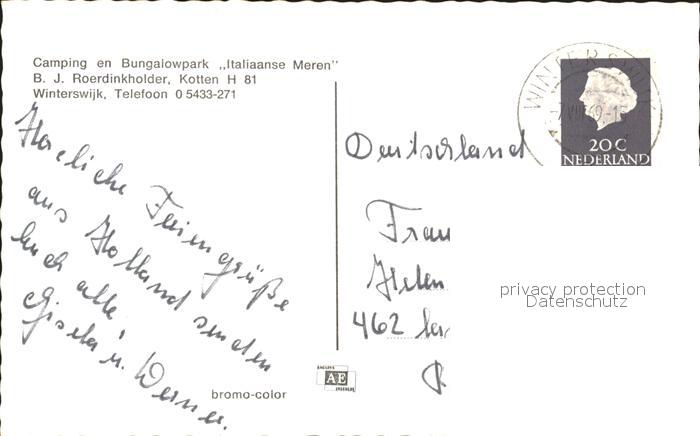 Camping en Bungalowpark „Italiaanse Meren"
B. J. Roerdinkholder, Kotten H 81
Winterswijk, Telefoon 0 5433-271
Herzliche Feriengrüße
aus Holland senden
Euch alle
Gisela u. Werner.
bromo-color
AE
WINTERSWIJK
20 C
NEDERLAND
Deutschland
Frau
Helen
462
privacy protection
Datenschutz